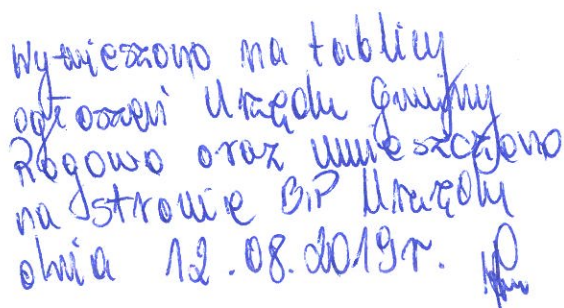 Wywieszono na tablicy
ogłoszeń Urzędu Gminy
Rogowo oraz umieszczono
na stronie BIP Urzędu
dnia 12.08.2019r.